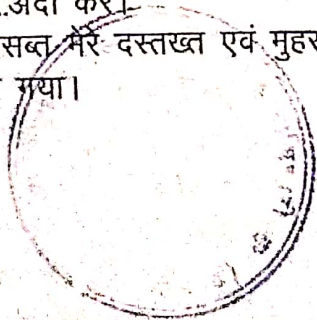 .अदा करे।
सब्त मेरे दस्तख्त एवं मुहर
गया।